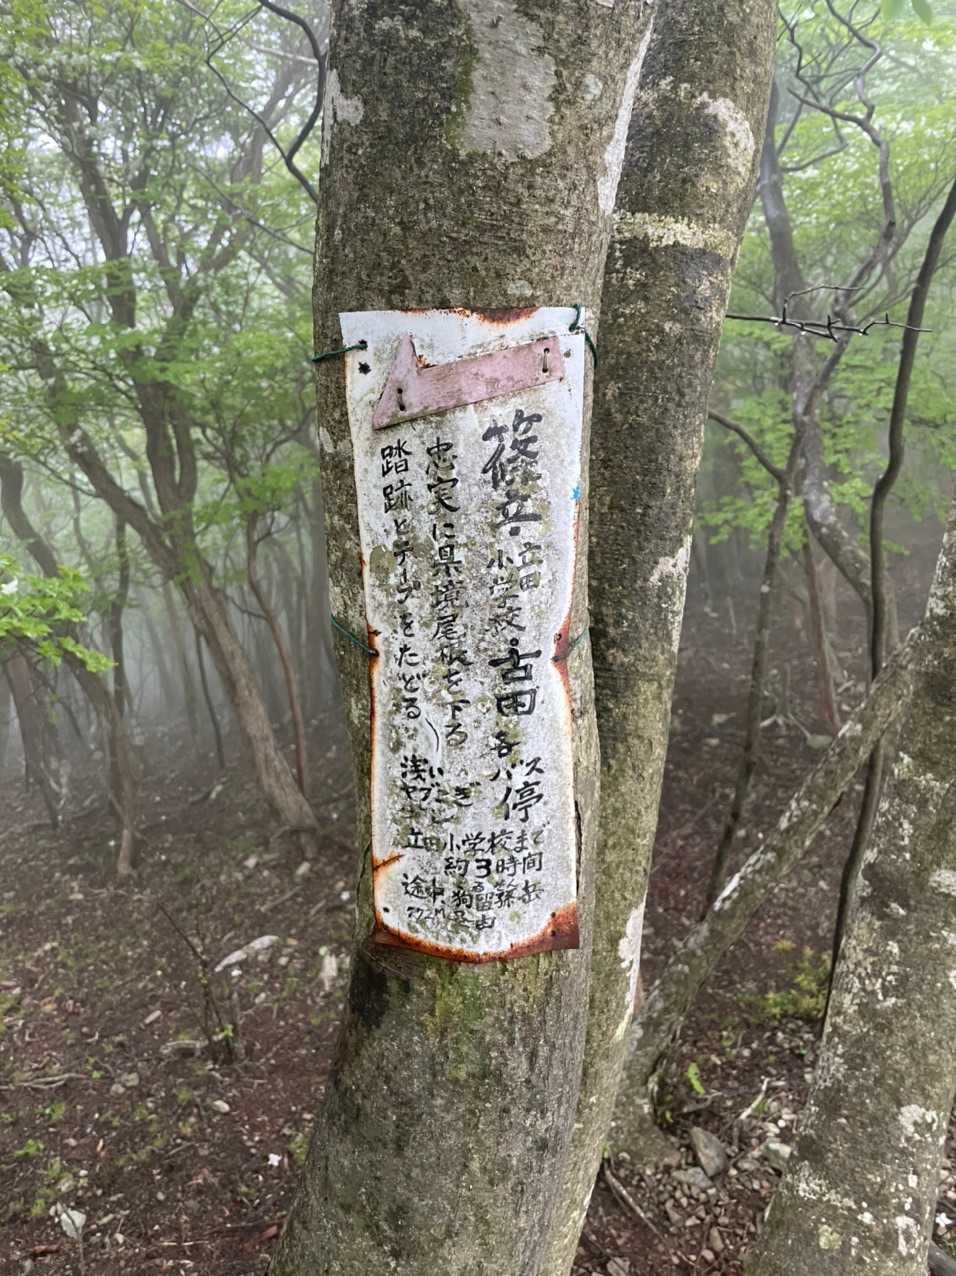 篠立・立田小学校・古田各バス停
忠実に県境尾根を下る
踏跡とテープをたどる
浅いヤブこぎ
立田小学校まで
約3時間
途中、狗留孫岳
経由